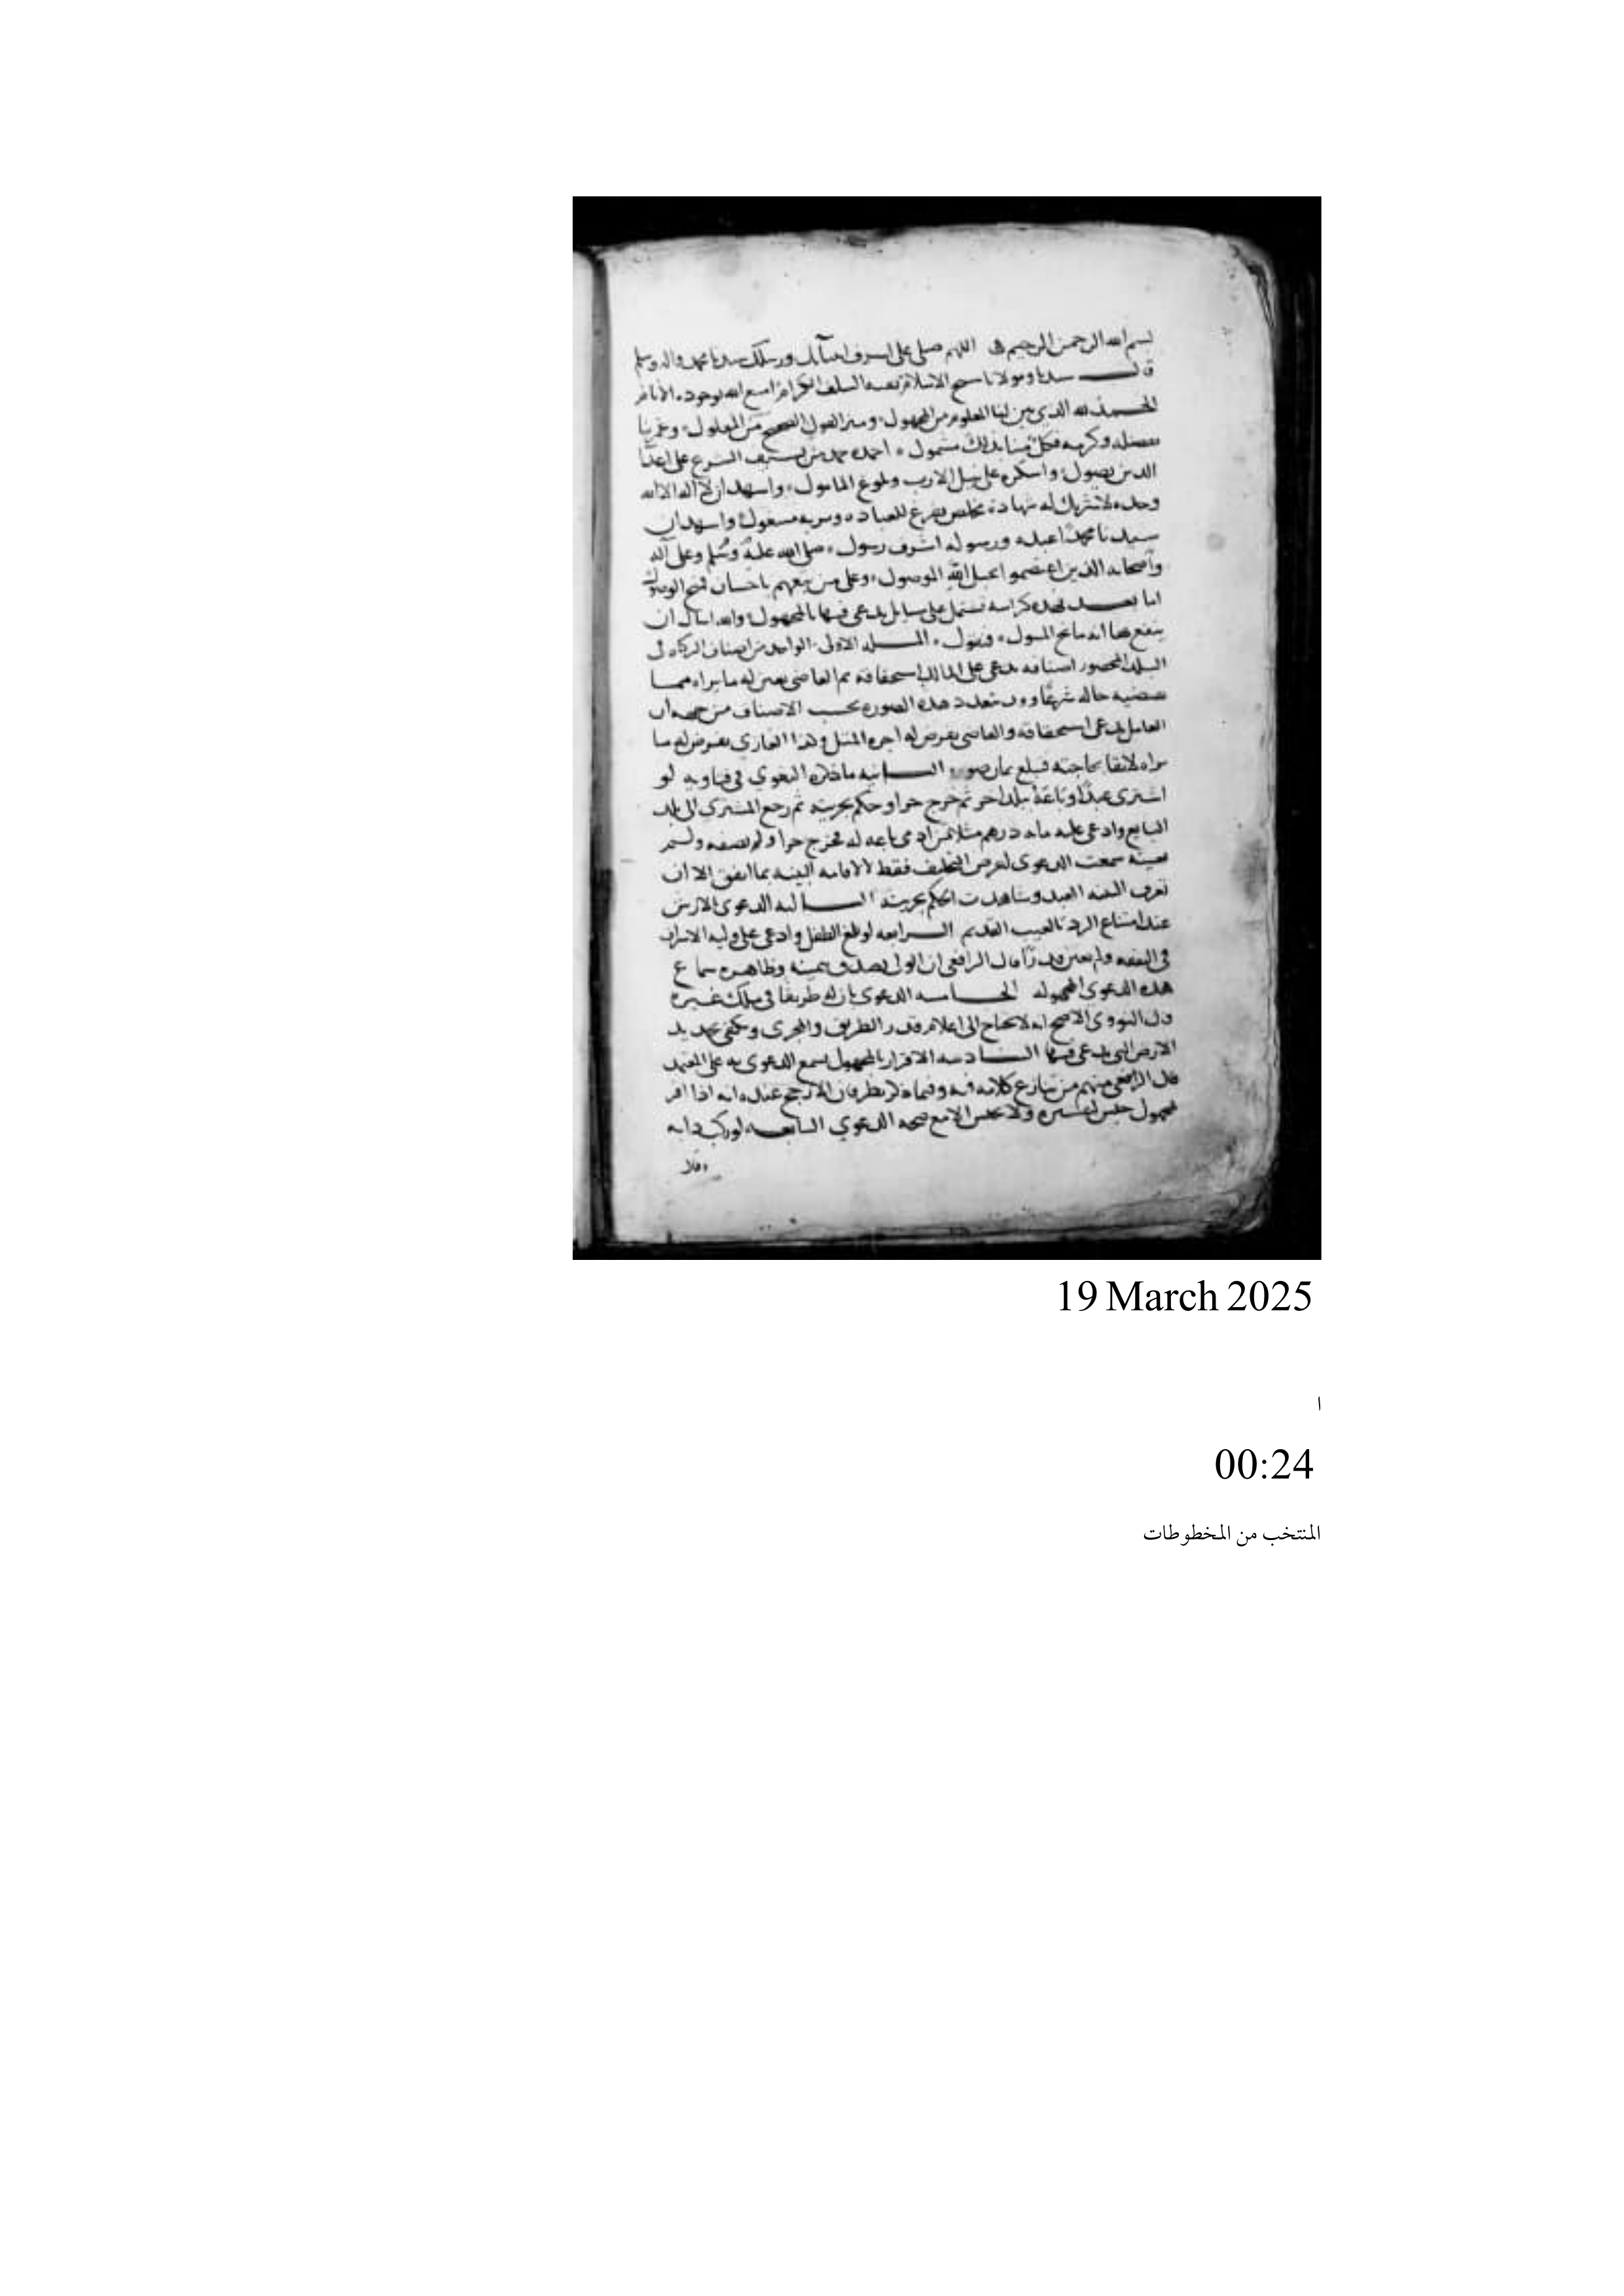 بسم الله الرحمن الرحيم اللهم صلى على اشرف ورسلك سيدنا محمد واله وسلم
قال سيدنا ومولانا شيخ الاسلام بقية السلف الكرام امتع الله بوجوده الانام
الحمد لله الذي بين لنا المعلوم من المجهول وميز القول الصحيح من المعلول وعمرنا
بفضله وكرمه فكل منا بذلك مشمول احمده حمد من بسيف الشرع على اعدا
الدين يصول واشكره على نيل الارب وبلوغ المامول واشهد ان لا اله الا الله
وحده لا شريك له شهادة مخلص تفرغ للعباده وسره مشغول واشهد ان
سيدنا محمدا عبده ورسوله اشرف رسول صلى الله عليه وسلم وعلى آله
وأصحابه الذين اعتصموا بحبل الله الموصول وعلى من تبعهم باحسان
اما بعد فهذه كراسه تشتمل على مسايل يدعى فيها بالمجهول والله اسال ان
ينفع بها انه مانح السول فنقول المسله الاولى الواحد من اصناف الزكاه في
البلد المحصور اصنافه يدعى على المالك استحقاقه ثم القاضي يعين له ما يراه مما
يقتضيه حاله شرعا وقد تتعدد هذه الصوره بحسب الاصناف من جهه ان
العامل يدعى استحقاقه والقاضي يفرض له اجره المثل وكذا الغازي يفرض له ما
يراه لائقا بحاجته فبلغ ثمان صور الثانيه ما ذكره البغوي في فتاويه لو
اشترى عبدا وباعه ببلد اخر ثم خرج حرا وحكم بحريته ثم رجع المشتري الى بلد
البايع وادعى عليه مايه درهم مثلا ثمن ادمى باعه له فخرج حرا ولم يصفه ولم
يعينه سمعت الدعوى لغرض التحليف فقط لا لاقامه البينه بما اتفق الا ان
تعرف البينه العبد وشاهدت الحكم بحريته الثالثه الدعوى بالارش
عند امتناع الرد بالعيب القديم الرابعه لو بلغ الطفل وادعى على وليه الاسراف
في النفقه ولم يعين قدرا قال الرافعي ان الولي يصدق بيمينه وظاهره سماع
هذه الدعوى المجهوله الخامسه الدعوى بان له طريقا في ملك غيره
قال النووي الاصح انه لا يحتاج الى اعلام قدر الطريق والمجرى ويكفي تحديد
الارض التي يدعى فيها السادسه الاقرار بالمجهول تسمع الدعوى به على المعتمد
قال الرافعي منهم من تنازع كلامه فيه وفيما ذكر نظر فان الارجح عنده انه اذا اقر
بمجهول حبس لتفسيره ولا يحبس الا مع صحه الدعوي السابعه لو ركب دابه
19 March 2025
ا
00:24
المنتخب من المخطوطات